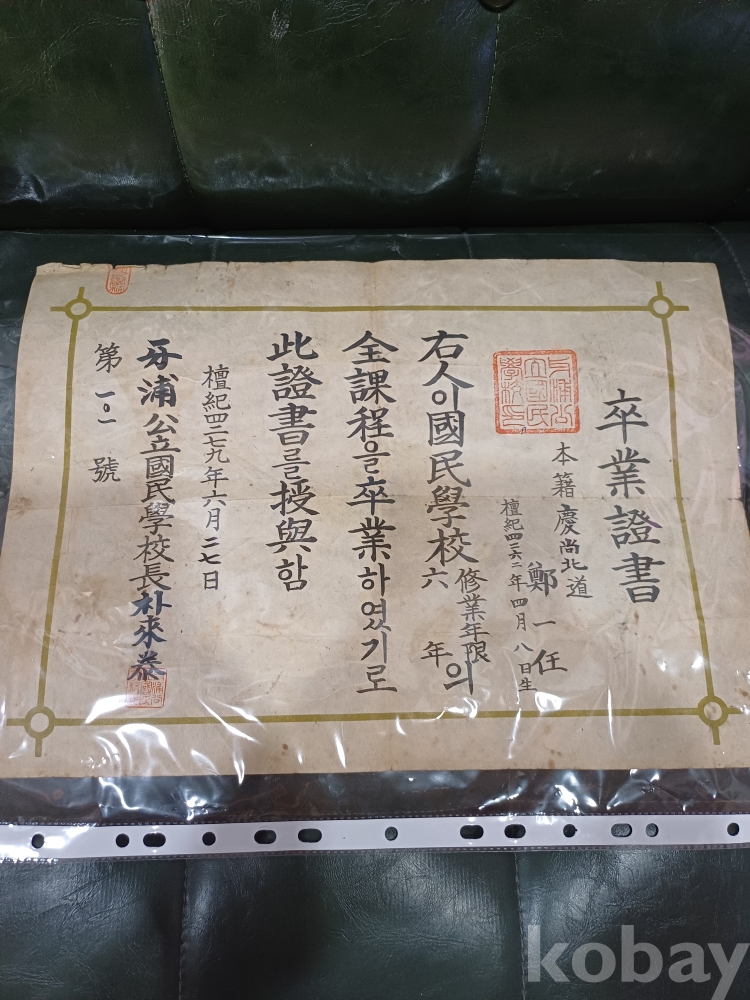 卒業證書
本籍 慶尙北道
鄭一任
檀紀四二六二年四月八日生
右人이國民學校修業年限六年의
全課程을卒業하였기로
此證書를授與함
檀紀四二七九年六月二七日
浦公立國民學校長 朴來
第一〇一號
kobay